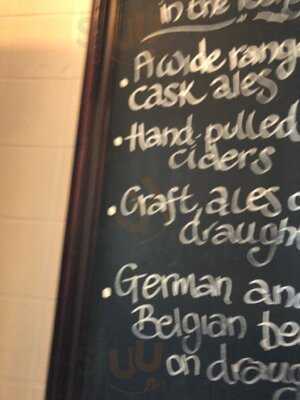 in the
• A wide rang
cask ales
• Hand-pulled
ciders
• Craft ales o
draugh
• German an
Belgian be
on draug